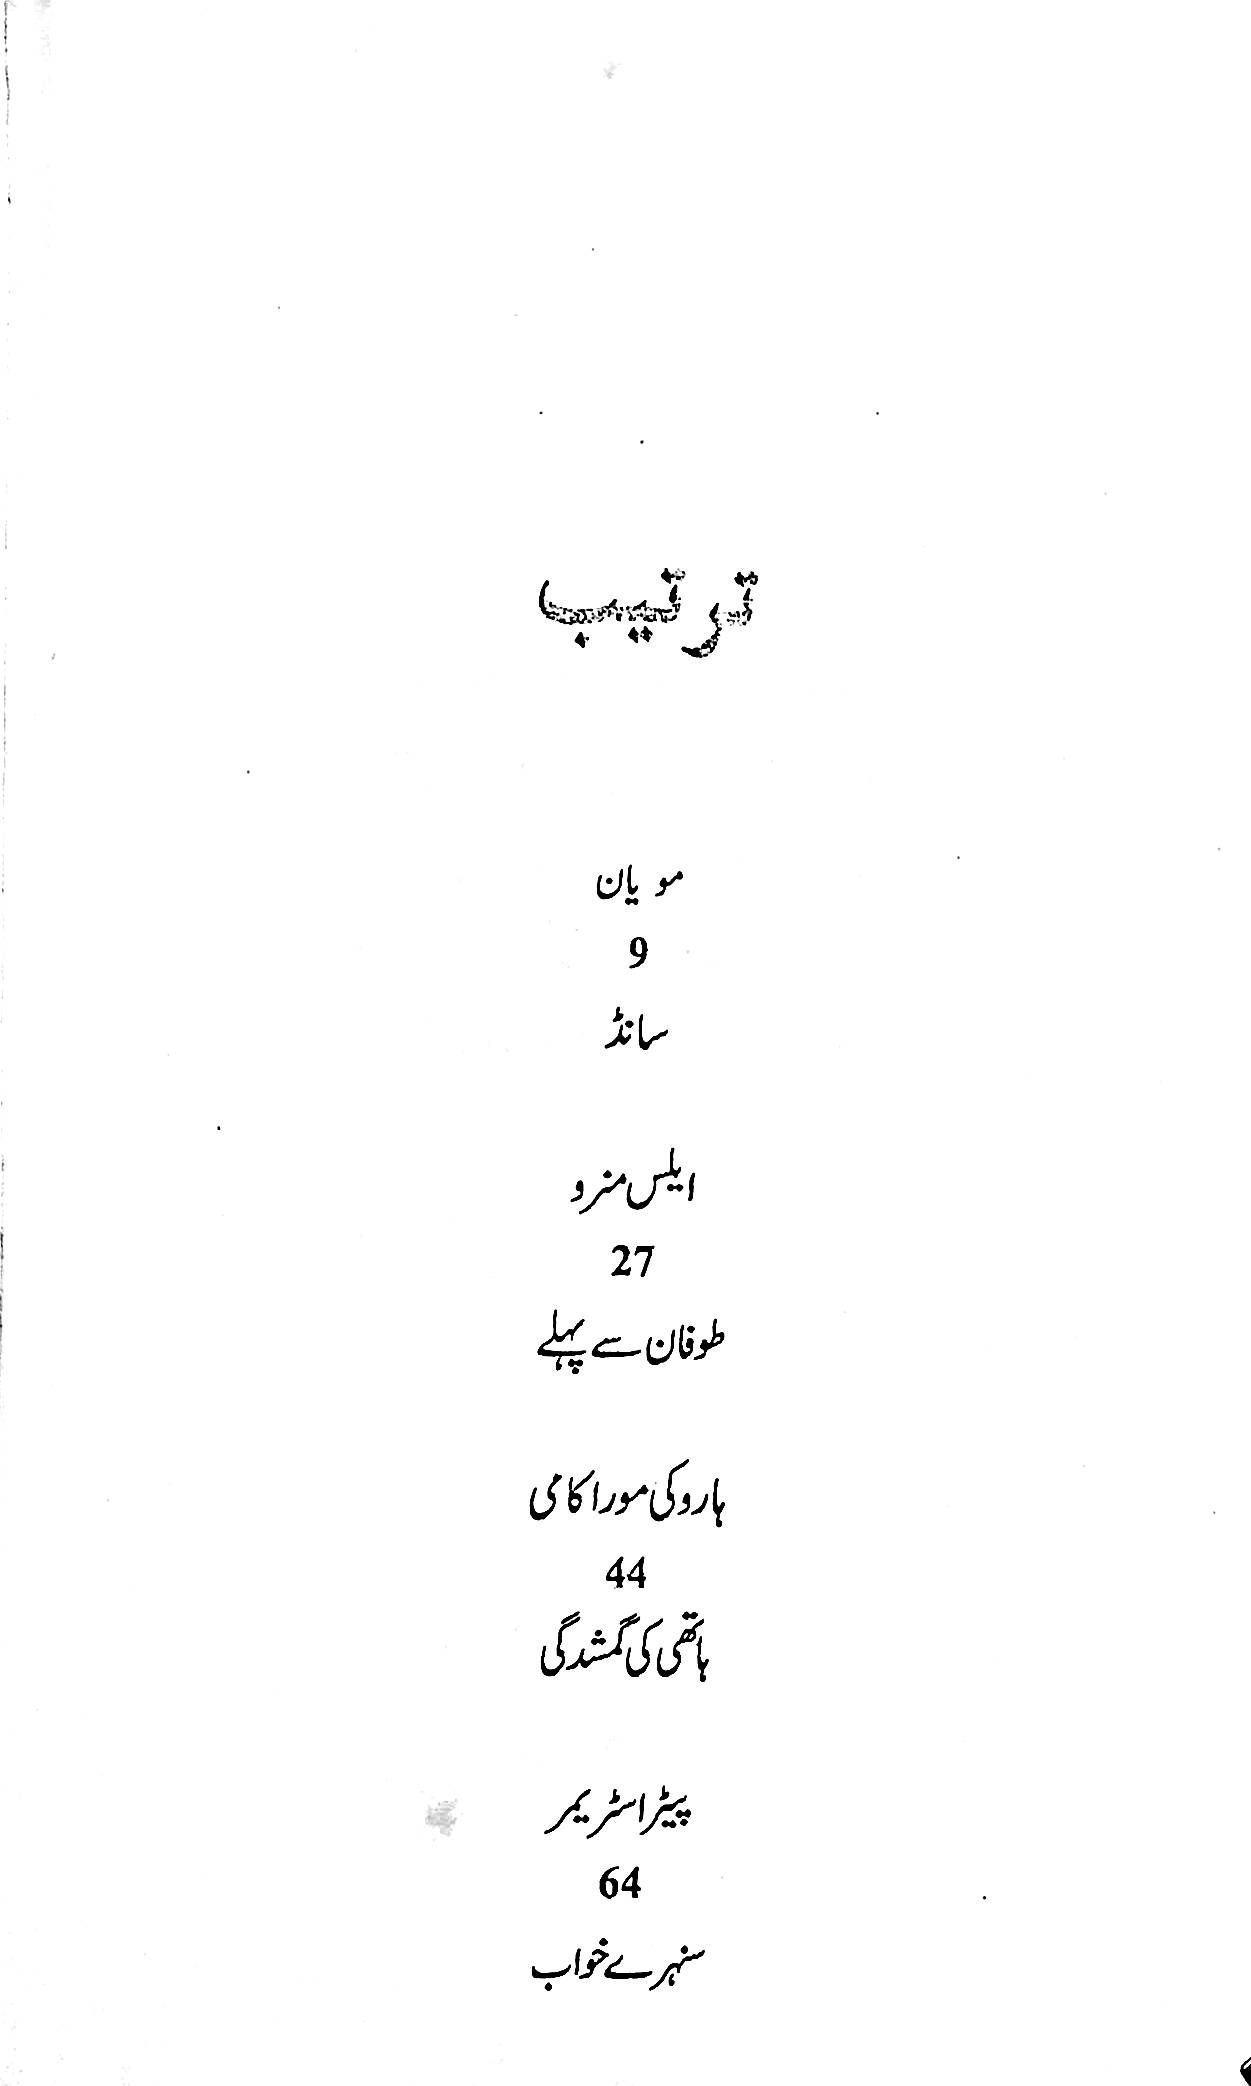 ترتیب
مو یان
9
سانڈ
ایلس منرو
27
طوفان سے پہلے
ہاروکی موراکامی
44
ہاتھی کی گمشدگی
پیٹر اسٹریمر
64
سنہرے خواب